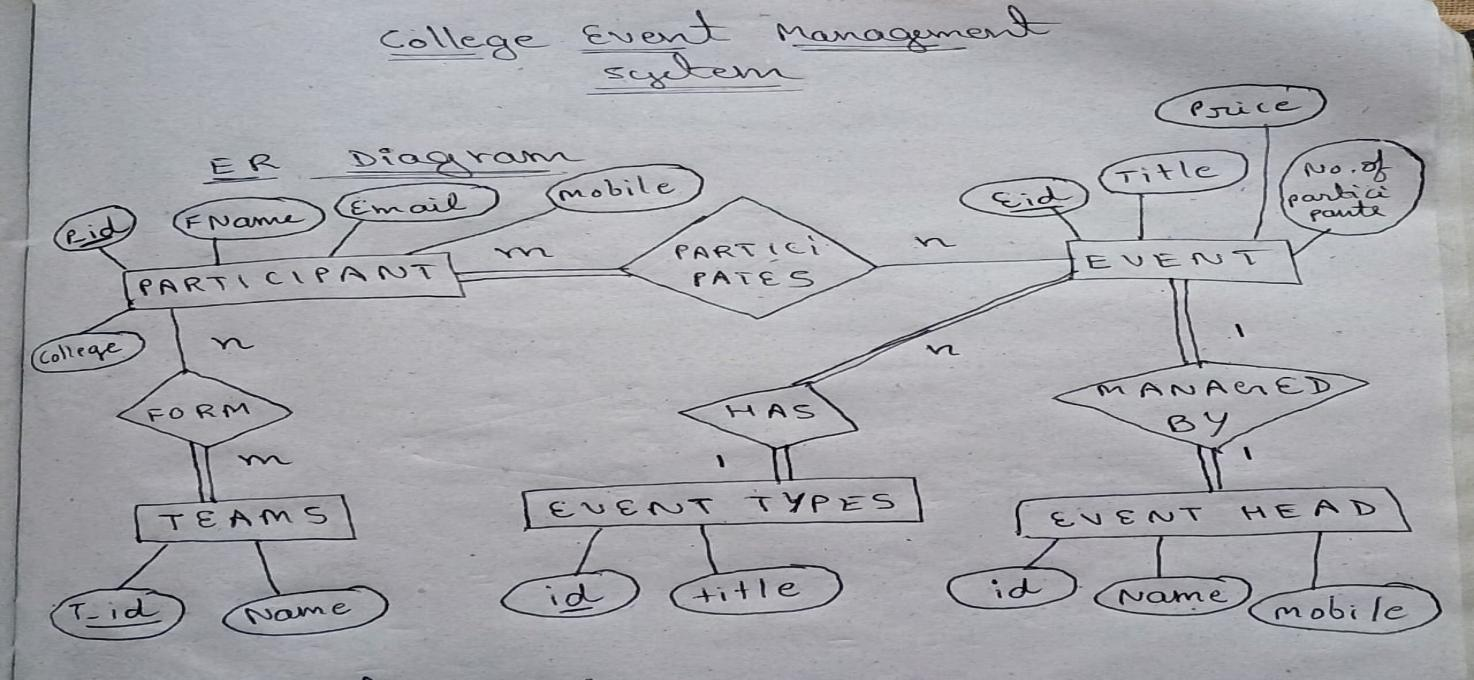 College Event Management
System
ER Diagram
P_id
FName
Email
mobile
PARTICIPANT
College
m
PARTICI
PATES
n
Eid
Title
Price
No. of
partici
pants
EVENT
n
FORM
m
TEAMS
T_id
Name
n
HAS
1
EVENT TYPES
id
title
1
MANAGED
BY
1
EVENT HEAD
id
Name
mobile